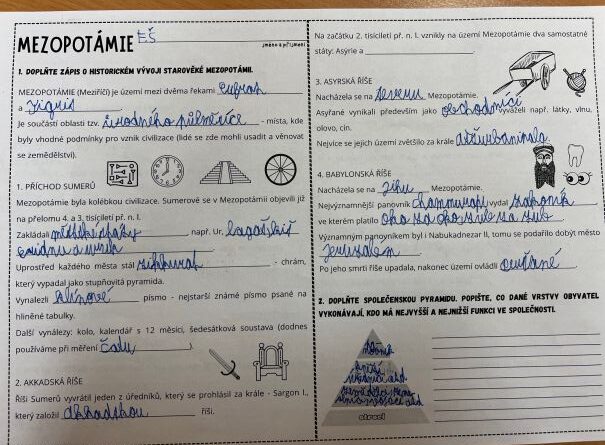 MEZOPOTÁMIE EŠ
jméno a příjmení
1. DOPLŇTE ZÁPIS O HISTORICKÉM VÝVOJI STAROVĚKÉ MEZOPOTÁMII.
MEZOPOTÁMIE (Meziříčí) je území mezi dvěma řekami Eufrat
a Tigris.
Je součástí oblasti tzv. úrodného půlměsíce - místa, kde
byly vhodné podmínky pro vznik civilizace (lidé se zde mohli usadit a věnovat
se zemědělství).
1. PŘÍCHOD SUMERŮ
Mezopotámie byla kolébkou civilizace. Sumerové se v Mezopotámii objevili již
na přelomu 4. a 3. tisíciletí př. n. l.
Zakládali městské státy např. Ur, lagaš, kiš
eridu a uruk
Uprostřed každého města stál zikkurat - chrám,
který vypadal jako stupňovitá pyramida.
Vynalezli klínové písmo - nejstarší známé písmo psané na
hliněné tabulky.
Další vynálezy: kolo, kalendář s 12 měsíci, šedesátková soustava (dodnes
používáme při měření času).
2. AKKADSKÁ ŘÍŠE
Říši Sumerů vyvrátil jeden z úředníků, který se prohlásil za krále - Sargon I.,
který založil akkadskou říši.
Na začátku 2. tisíciletí př. n. l. vznikly na území Mezopotámie dva samostatné
státy: Asýrie a
3. ASYRSKÁ ŘÍŠE
Nacházela se na severu Mezopotámie.
Asyřané vynikali především jako obchodníci vyváželi např. látky, vlnu,
olovo, cín.
Nejvíce se jejich území zvětšilo za krále aššurbanipala
4. BABYLONSKÁ ŘÍŠE
Nacházela se na jihu Mezopotámie.
Nejvýznamnější panovník chammurapi vydal zákoník
ve kterém platilo oko za oko zub za zub.
Významným panovníkem byl i Nabukadnezar II, tomu se podařilo dobýt město
Jeruzalem.
Po jeho smrti říše upadala, nakonec území ovládli
2. DOPLŇTE SPOLEČENSKOU PYRAMIDU. POPIŠTE, CO DANÉ VRSTVY OBYVATEL
VYKONÁVAJÍ, KDO MÁ NEJVYŠŠÍ A NEJNIŽŠÍ FUNKCI VE SPOLEČNOSTI.
kněží
otroci